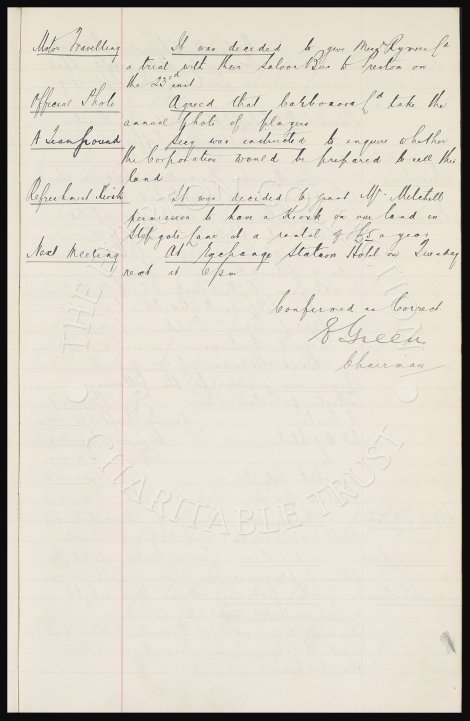 Motor Travelling It was decided to give Messrs Rymers Ld
a trial with their Saloon Bus to Preston on
the 23rd inst
Official Photo Agreed that Carbonora Ld take the
annual photo of players
A Trainground Secy was instructed to enquire whether
the Corporation would be prepared to sell this
land
Refreshment Kiosk It was decided to grant Mr Mitchell
permission to have a Kiosk on our land in
gate Lane at a rental of £5 a year
Next Meeting At Exchange Station Hotel on Tuesday
next at 6pm
Confirmed as Correct
E Green
Chairman
THE
CHARITABLE TRUST